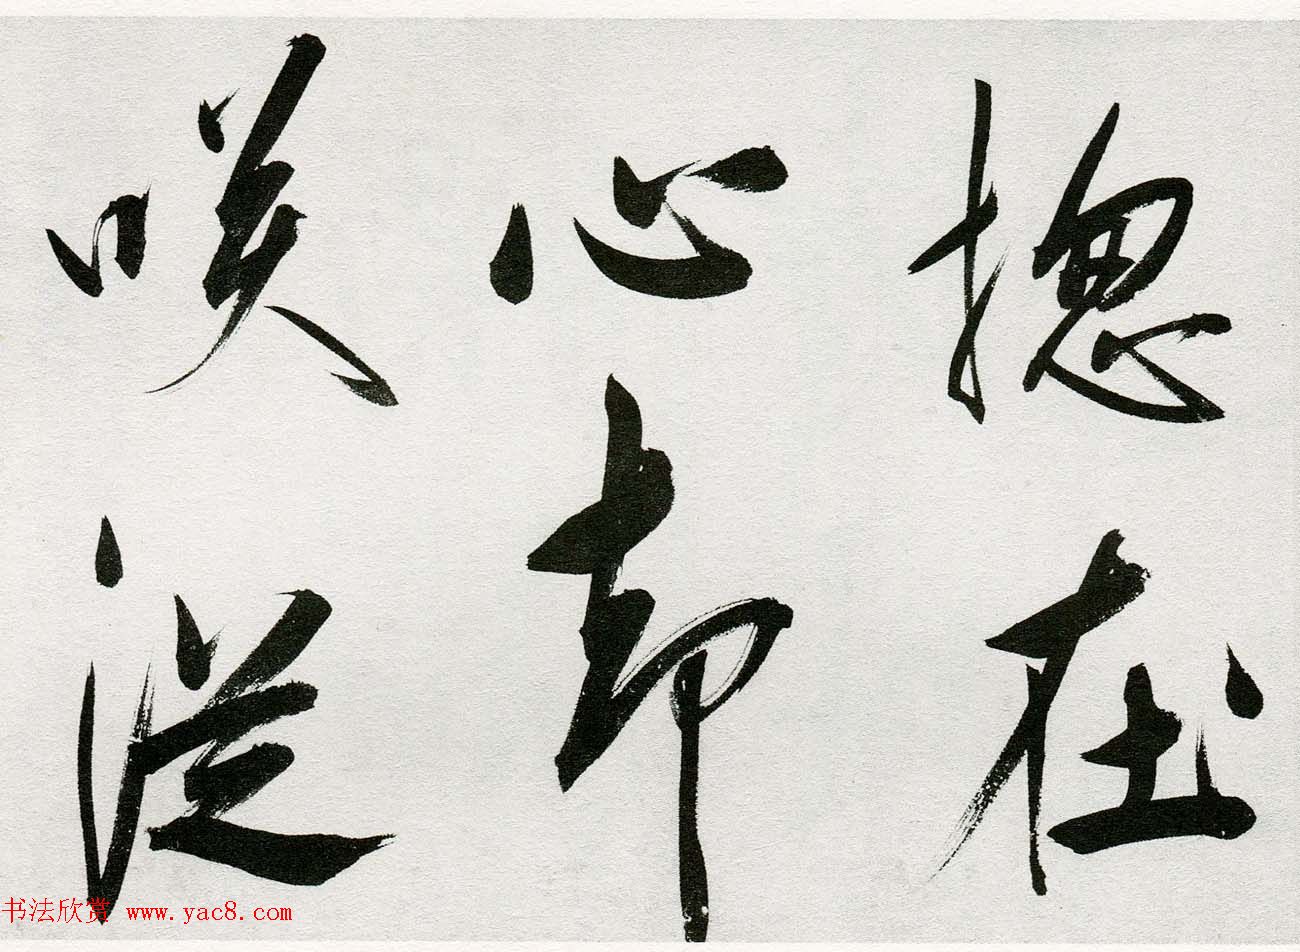 摠在
心却
咲從
书法欣赏 www.yac8.com